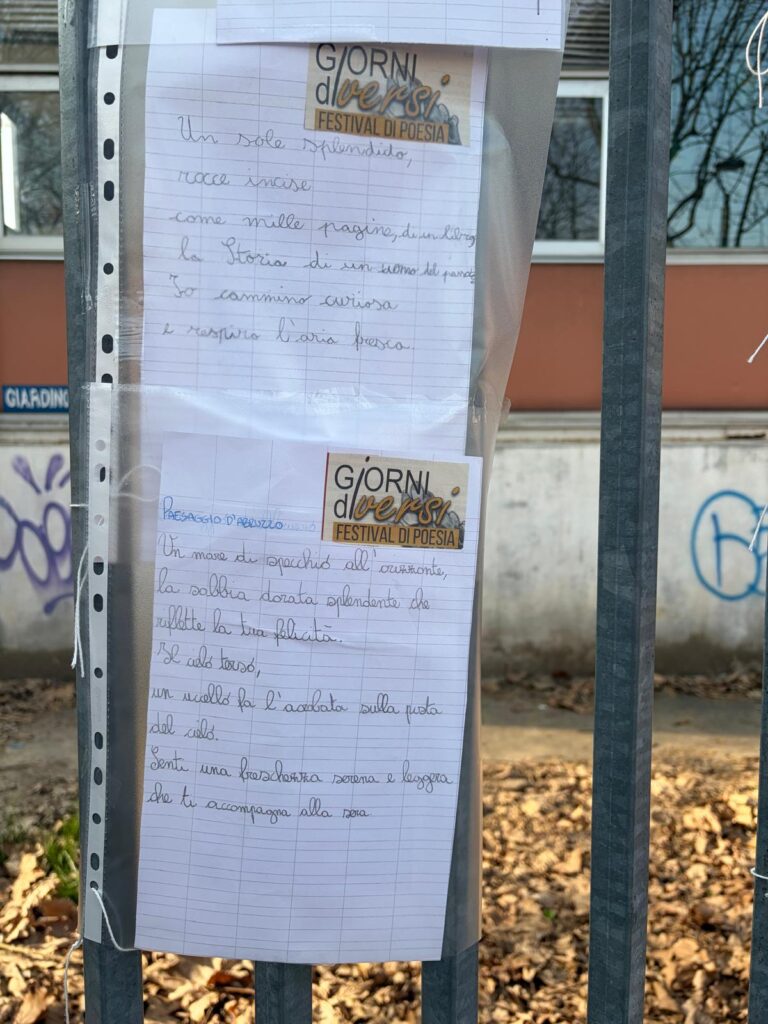 GIORNI
diversi
FESTIVAL DI POESIA
Un sole splendido,
rocce incise
come mille pagine, di un libro
la Storia di un uomo del passato
Io cammino curiosa
e respiro l'aria fresca.
GIARDINO
GIORNI
diversi
FESTIVAL DI POESIA
PAESAGGIO D'ABRUZZO
Un mare di specchio all'orizzonte,
la sabbia dorata splendente che
riflette la tua felicità.
Il cielo terso,
un uccello fa l'acrobata sulla pista
del cielo.
Senti una freschezza serena e leggera
che ti accompagna alla sera